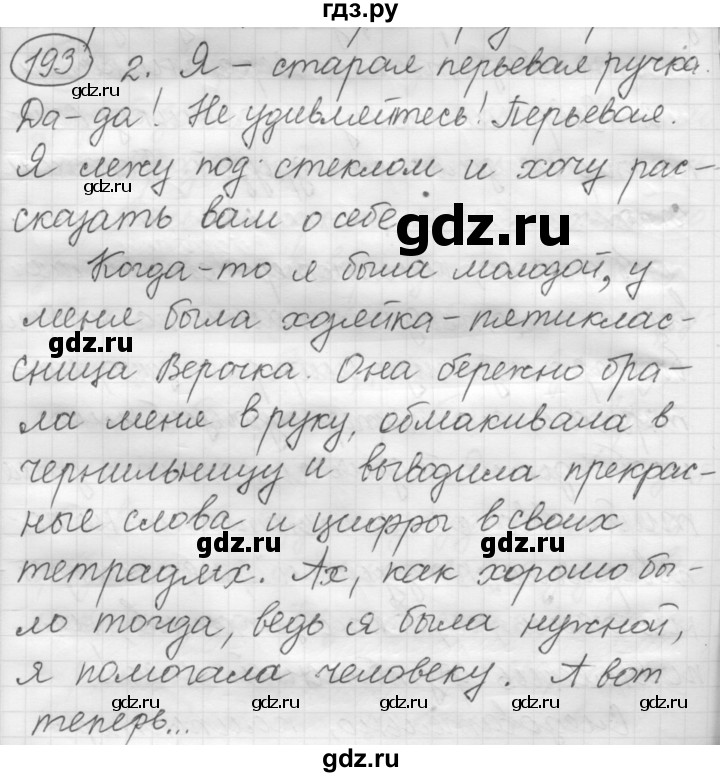 гдз.ру
193 2. Я – старая перьевая ручка.
gdz.ru gdz.ru
Да-да! Не удивляйтесь! Перьевая.
Я лежу под стеклом и хочу рас-
gdz.ru
сказать вам о себе.
gdz.ru
Когда-то я была молодой, у
меня была хозяйка – пятиклас-
gdz.ru
сница Верочка. Она бережно бра-
gdz.ru
ла меня в руку, обмакивала в
чернильницу и выводила прекрас-
ные слова и цифры в своих
gdz.ru gdz.ru
тетрадях. Ах, как хорошо бы-
ло тогда, ведь я была нужной,
я помогала человеку. А вот
gdz.ru gdz.ru gdz.ru
теперь...
gdz.ru